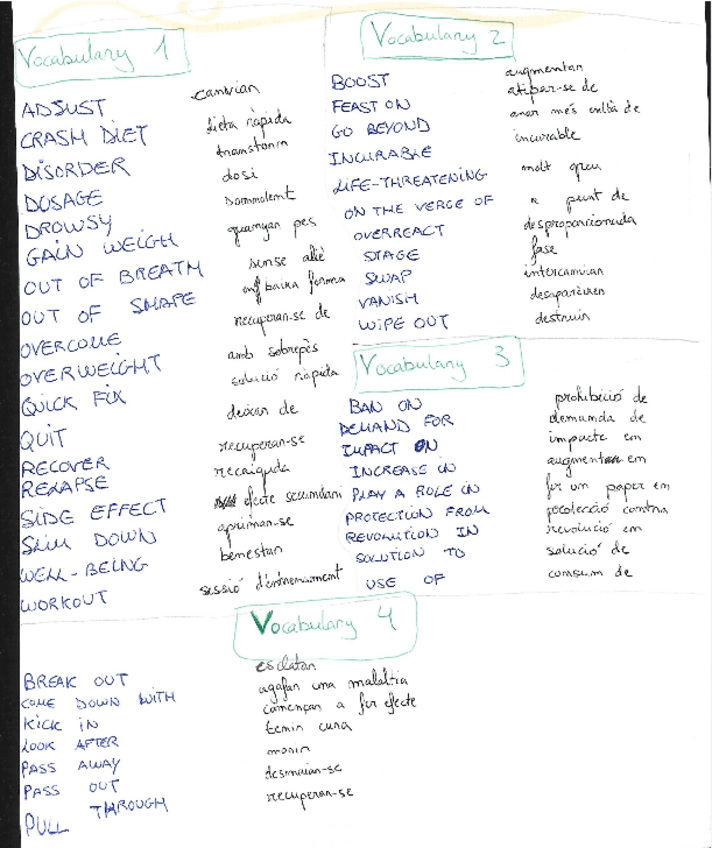 Vocabulary 1
ADJUST canvian
CRASH DIET dieta ràpida
DISORDER transtorn
DOSAGE dosi
DROWSY somnolent
GAIN WEIGH guanyan pes
OUT OF BREATH sense alè
OUT OF SHAPE baixa forma
OVERCOME recuperan-se de
OVERWEIGHT amb sobrepès
QUICK FIX solució ràpida
QUIT deixan de
RECOVER recuperan-se
RELAPSE recaiguda
SIDE EFFECT efecte secundari
SLIM DOWN apriman-se
WELL-BEING benestan
WORKOUT sessió d'entrenament
Vocabulary 2
BOOST augmentan
FEAST ON atipar-se de
GO BEYOND anar més enllà de
INCURABLE incurable
LIFE-THREATENING molt greu
ON THE VERGE OF a punt de
OVERREACT desproporcionada
STAGE fase
SWAP intercanvian
VANISH desaparèixen
WIPE OUT destruin
Vocabulary 3
BAN ON prohibició de
DEMAND FOR demanda de
IMPACT ON impacte em
INCREASE IN augment em
PLAY A ROLE IN fer un paper em
PROTECTION FROM protecció contra
REVOLUTION IN revolució em
SOLUTION TO solució de
USE OF consum de
Vocabulary 4
BREAK OUT esclatan
COME DOWN WITH agafan una malaltia
KICK IN començan a fer efecte
LOOK AFTER tenin cura
PASS AWAY morin
PASS OUT desmaian-se
PULL THROUGH recuperan-se